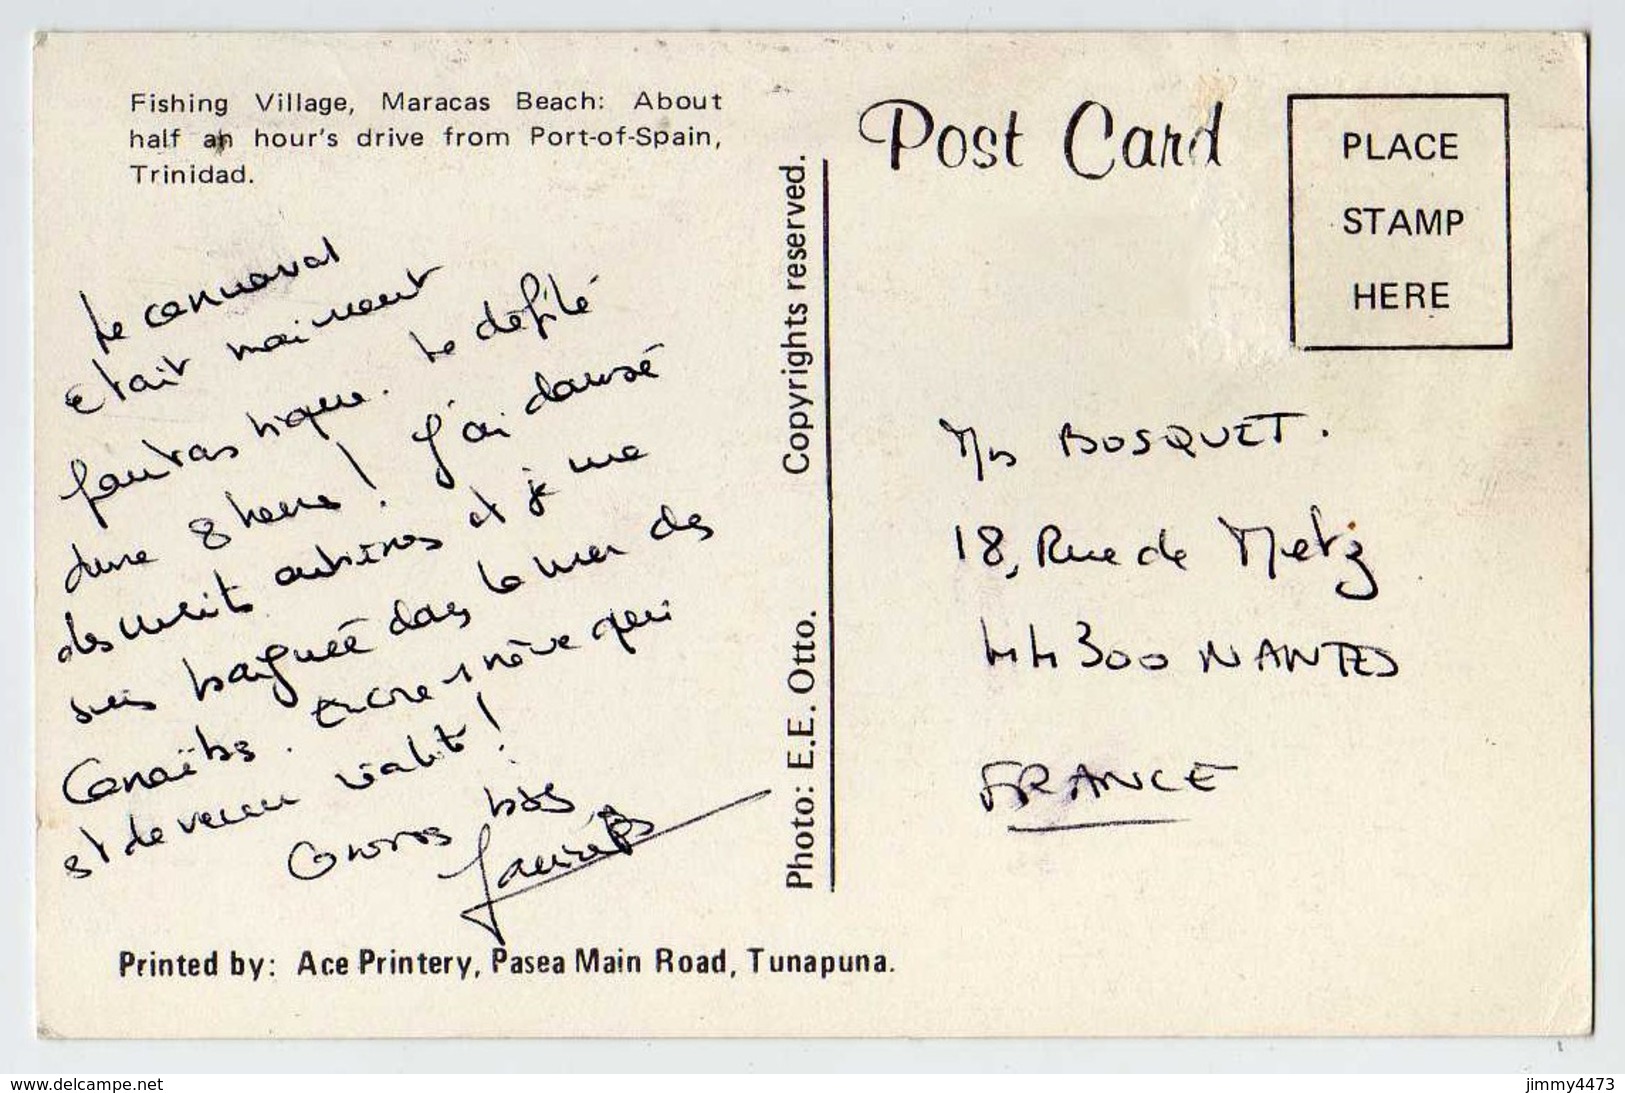 Fishing Village, Maracas Beach: About
half an hour's drive from Port-of-Spain,
Trinidad.
Le carnaval
était vraiment
fantastique. Le défilé
dure 8 heures ! J'ai dansé
des nuits entières et je me
suis baignée dans la mer des
Caraïbes. Encore 1 rêve qui
est devenu réalité !
Grosses bises
Copyrights reserved.
Photo: E.E. Otto.
Post Card
PLACE
STAMP
HERE
BOSQUET.
18, Rue de Metz
44300 NANTES
FRANCE
Printed by: Ace Printery, Pasea Main Road, Tunapuna.
www.delcampe.net
jimmy4473